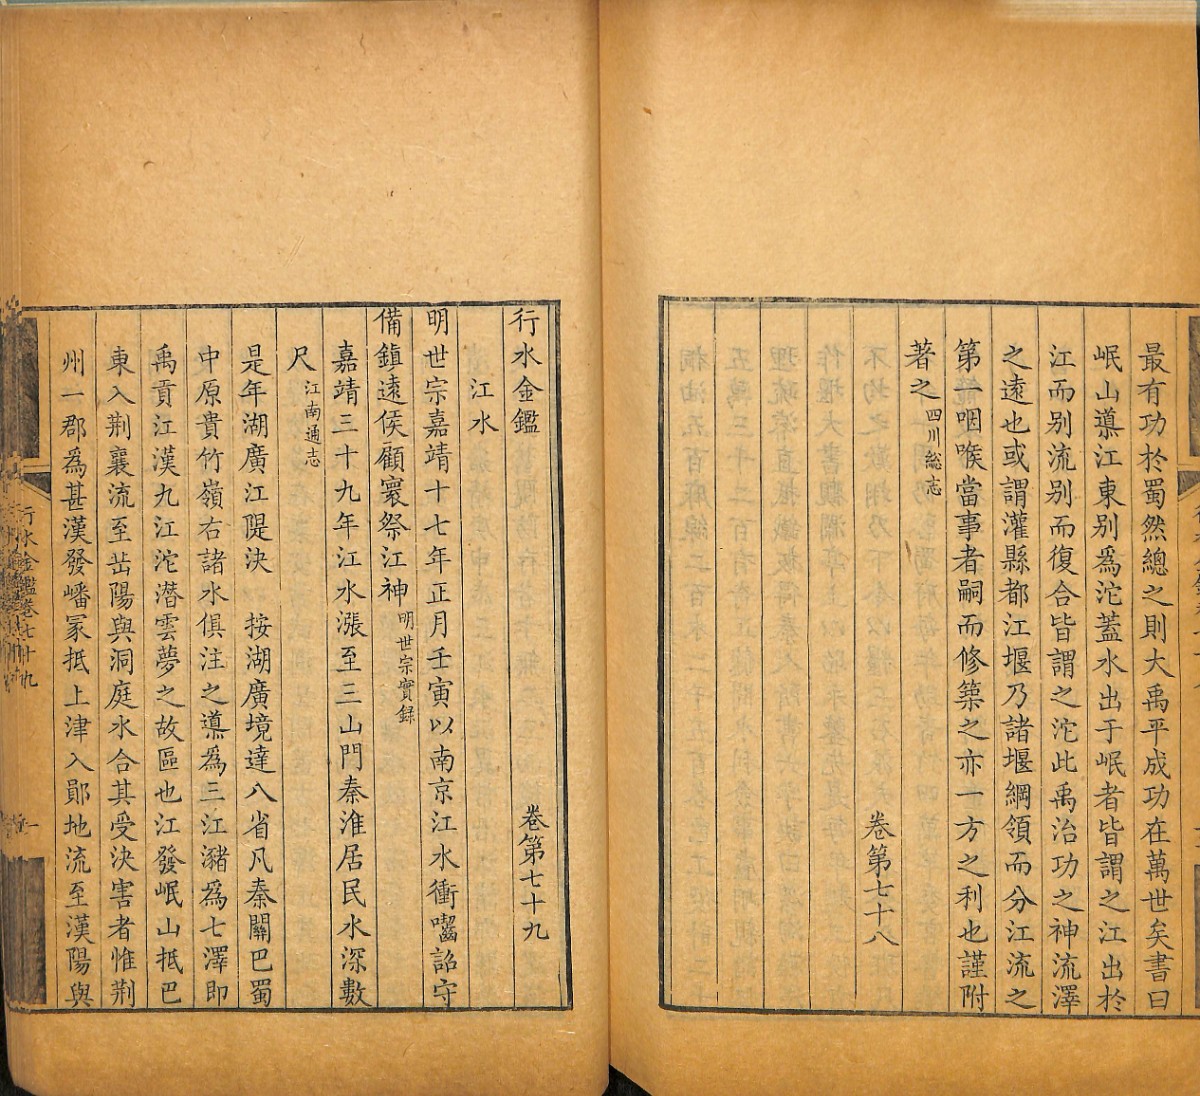 最有功於蜀然總之則大禹平成功在萬世矣書曰
岷山導江東別爲沱蓋水出于岷者皆謂之江出於
江而別流別而復合皆謂之沱此禹治功之神流澤
之遠也或謂灌縣都江堰乃諸堰綱領而分江流之
第一咽喉當事者嗣而修築之亦一方之利也謹附
著之四川総志
卷第七十八
行水金鑑 卷第七十九
江水
明世宗嘉靖十七年正月壬寅以南京江水衝囓詔守
備鎮遠侯顧寰祭江神明世宗實録
嘉靖三十九年江水漲至三山門秦淮居民水深數
尺江南通志
是年湖廣江隄決 按湖廣境達八省凡秦關巴蜀
中原貴竹嶺右諸水俱注之導爲三江瀦爲七澤即
禹貢江漢九江沱潛雲夢之故區也江發岷山抵巴
東入荆襄流至岳陽與洞庭水合其受決害者惟荆
州一郡爲甚漢發嶓冢抵上津入鄖地流至漢陽與
行水金鑑卷七十九